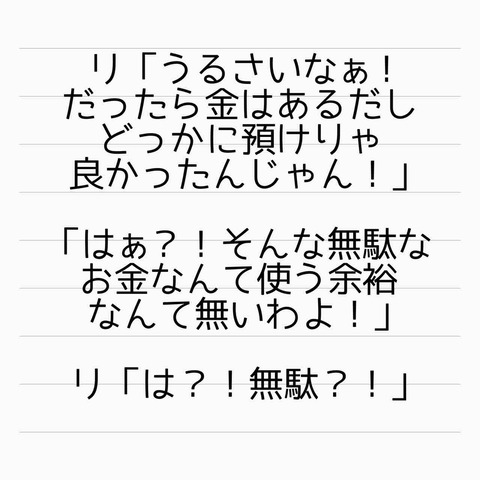 リ「うるさいなぁ！
だったら金はあるだし
どっかに預けりゃ
良かったんじゃん！」
「はぁ？！そんな無駄な
お金なんて使う余裕
なんて無いわよ！」
リ「は？！無駄？！」